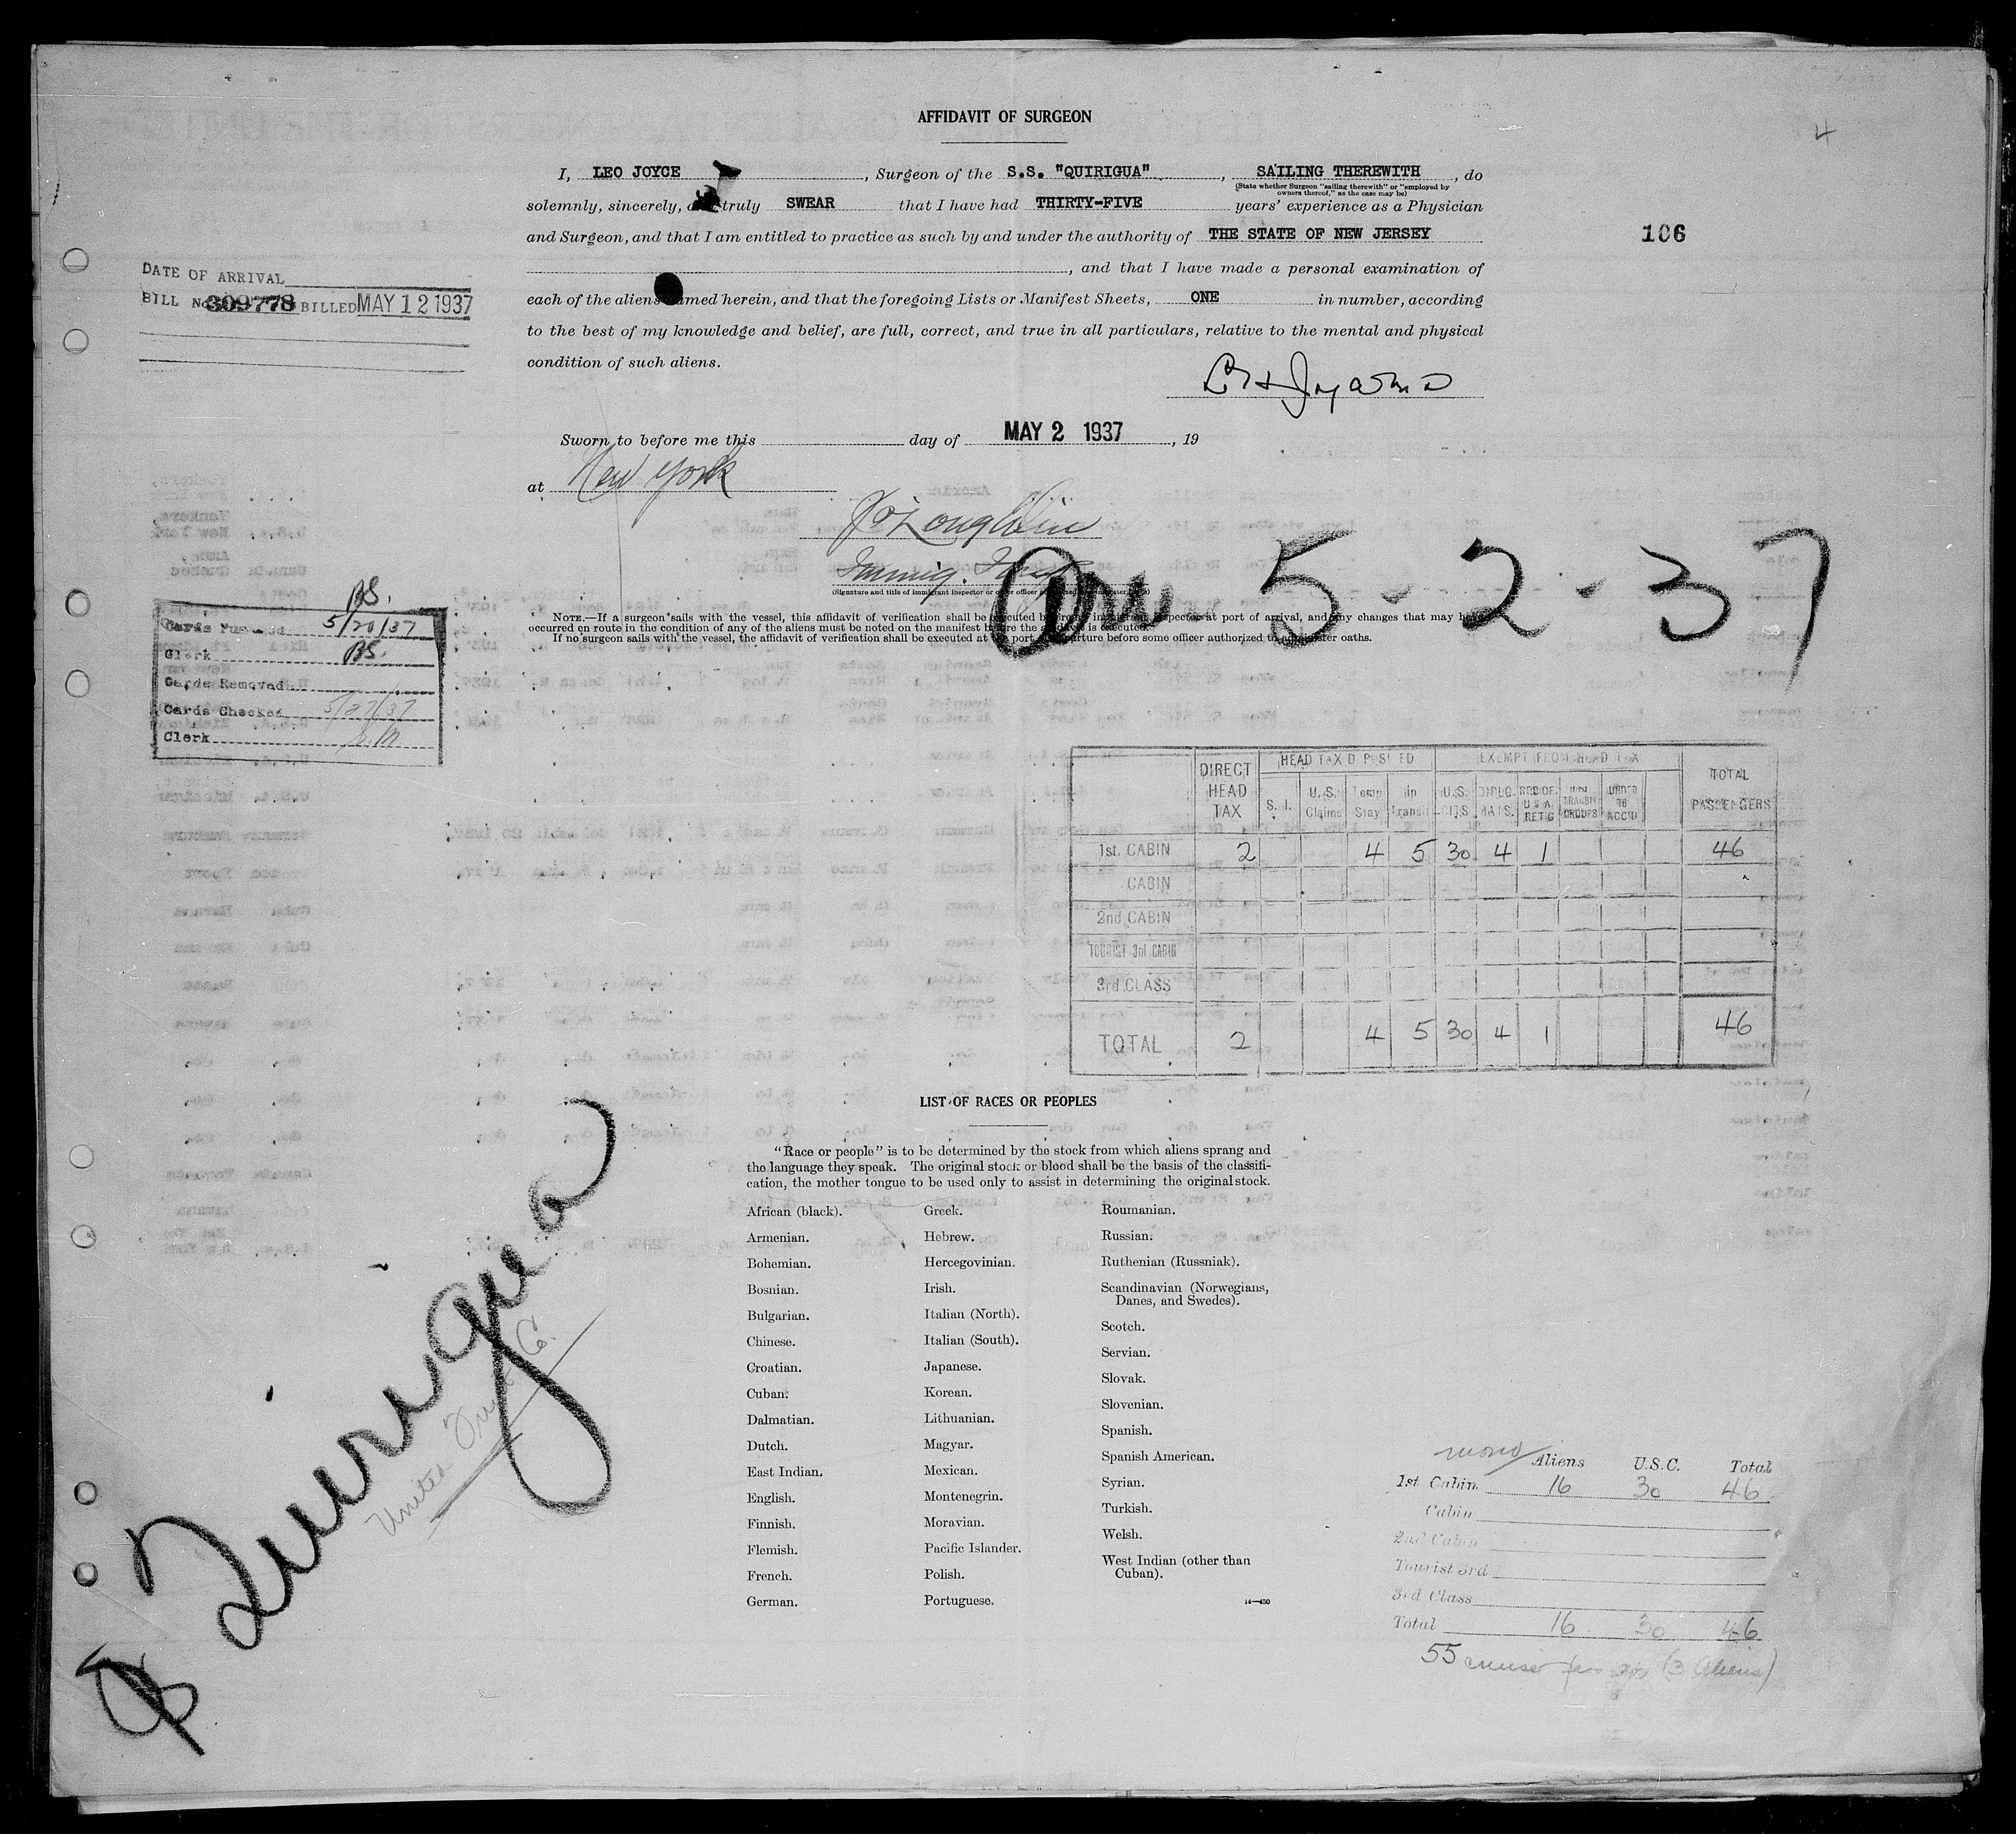 4
AFFIDAVIT OF SURGEON
I, LEO JOYCE, Surgeon of the S.S. "QUIRIGUA", SAILING THEREWITH, do
(State whether Surgeon "sailing therewith" or "employed by
owners thereof," as the case may be)
solemnly, sincerely, truly SWEAR that I have had THIRTY-FIVE years' experience as a Physician
and Surgeon, and that I am entitled to practice as such by and under the authority of THE STATE OF NEW JERSEY
, and that I have made a personal examination of
each of the aliens named herein, and that the foregoing Lists or Manifest Sheets, ONE in number, according
to the best of my knowledge and belief, are full, correct, and true in all particulars, relative to the mental and physical
condition of such aliens.
106
DATE OF ARRIVAL
BILL No. 309778 BILLED MAY 12 1937
Sworn to before me this day of MAY 2 1937, 19
at New York
Immig.
(Signature and title of immigrant inspector or
5-2-37
NOTE.—If a surgeon sails with the vessel, this affidavit of verification shall be executed before inspector at port of arrival, and any changes that may have
occurred en route in the condition of any of the aliens must be noted on the manifest before the affidavit is executed.
If no surgeon sails with the vessel, the affidavit of verification shall be executed at the port of departure before some officer authorized to administer oaths.
BS.
Cards Punched 5/20/37
Clerk BS.
Cards Removed
Cards Checked 5/27/37
Clerk
DIRECT HEAD TAX HEAD TAX DEPOSITED EXEMPT FROM HEAD TAX TOTAL PASSENGERS
S. I. U.S. Claims Temp Stay In Transit U.S. CITS. DIPLO MATS. RES OF U.S.A. RET'G TRANSIT GROUPS UNDER 16 ACC'D
1st. CABIN 2 4 5 30 4 1 46
CABIN
2nd CABIN
TOURIST 3rd CABIN
3rd CLASS
TOTAL 2 4 5 30 4 1 46
LIST OF RACES OR PEOPLES
"Race or people" is to be determined by the stock from which aliens sprang and
the language they speak. The original stock or blood shall be the basis of the classifi-
cation, the mother tongue to be used only to assist in determining the original stock.
African (black).
Armenian.
Bohemian.
Bosnian.
Bulgarian.
Chinese.
Croatian.
Cuban.
Dalmatian.
Dutch.
East Indian.
English.
Finnish.
Flemish.
French.
German.
Greek.
Hebrew.
Hercegovinian.
Irish.
Italian (North).
Italian (South).
Japanese.
Korean.
Lithuanian.
Magyar.
Mexican.
Montenegrin.
Moravian.
Pacific Islander.
Polish.
Portuguese.
Roumanian.
Russian.
Ruthenian (Russniak).
Scandinavian (Norwegians,
Danes, and Swedes).
Scotch.
Servian.
Slovak.
Slovenian.
Spanish.
Spanish American.
Syrian.
Turkish.
Welsh.
West Indian (other than
Cuban).
14—430
Quirigua
United Fruit Co.
Aliens U.S.C. Total
1st Cabin 16 30 46
Cabin
2nd Cabin
Tourist 3rd
3rd Class
Total 16 30 46
55 (3 Aliens)